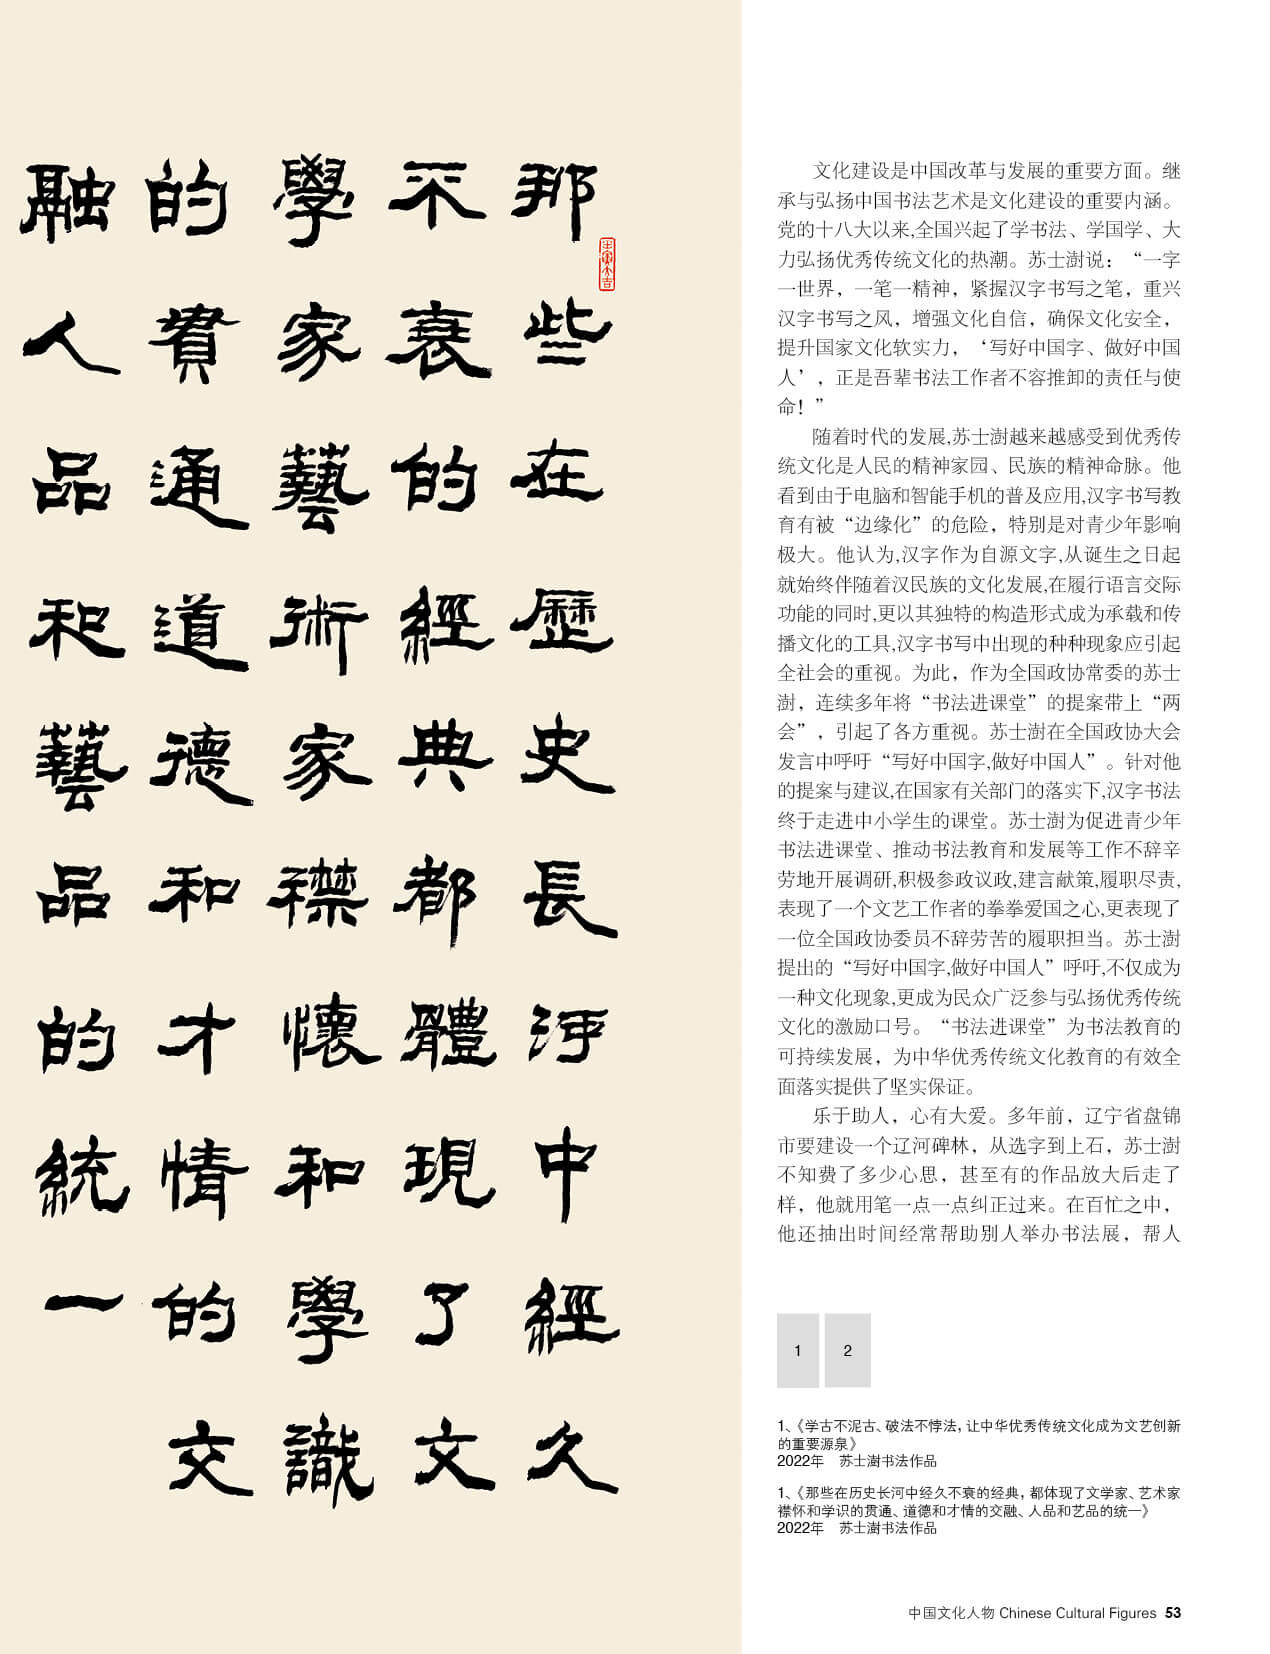 那些在歷史長河中經久
不衰的經典都體現了文
學家藝術家襟懷和學識
的貫通道德和才情的交
融人品和藝品的統一
壬寅大吉
文化建设是中国改革与发展的重要方面。继
承与弘扬中国书法艺术是文化建设的重要内涵。
党的十八大以来,全国兴起了学书法、学国学、大
力弘扬优秀传统文化的热潮。苏士澍说：“一字
一世界，一笔一精神，紧握汉字书写之笔，重兴
汉字书写之风，增强文化自信，确保文化安全，
提升国家文化软实力，‘写好中国字、做好中国
人’，正是吾辈书法工作者不容推卸的责任与使
命！”
随着时代的发展,苏士澍越来越感受到优秀传
统文化是人民的精神家园、民族的精神命脉。他
看到由于电脑和智能手机的普及应用,汉字书写教
育有被“边缘化”的危险，特别是对青少年影响
极大。他认为,汉字作为自源文字,从诞生之日起
就始终伴随着汉民族的文化发展,在履行语言交际
功能的同时,更以其独特的构造形式成为承载和传
播文化的工具,汉字书写中出现的种种现象应引起
全社会的重视。为此，作为全国政协常委的苏士
澍，连续多年将“书法进课堂”的提案带上“两
会”，引起了各方重视。苏士澍在全国政协大会
发言中呼吁“写好中国字,做好中国人”。针对他
的提案与建议,在国家有关部门的落实下,汉字书法
终于走进中小学生的课堂。苏士澍为促进青少年
书法进课堂、推动书法教育和发展等工作不辞辛
劳地开展调研,积极参政议政,建言献策,履职尽责,
表现了一个文艺工作者的拳拳爱国之心,更表现了
一位全国政协委员不辞劳苦的履职担当。苏士澍
提出的“写好中国字,做好中国人”呼吁,不仅成为
一种文化现象,更成为民众广泛参与弘扬优秀传统
文化的激励口号。“书法进课堂”为书法教育的
可持续发展，为中华优秀传统文化教育的有效全
面落实提供了坚实保证。
乐于助人，心有大爱。多年前，辽宁省盘锦
市要建设一个辽河碑林，从选字到上石，苏士澍
不知费了多少心思，甚至有的作品放大后走了
样，他就用笔一点一点纠正过来。在百忙之中，
他还抽出时间经常帮助别人举办书法展，帮人
1 2
1、《学古不泥古、破法不悖法，让中华优秀传统文化成为文艺创新
的重要源泉》
2022年　苏士澍书法作品
1、《那些在历史长河中经久不衰的经典，都体现了文学家、艺术家
襟怀和学识的贯通、道德和才情的交融、人品和艺品的统一》
2022年　苏士澍书法作品
中国文化人物 Chinese Cultural Figures 53